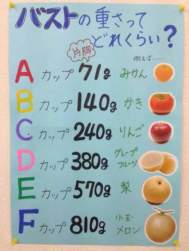 バストの重さって
どれくらい？
片胸
例えば…
Aカップ 71g みかん
Bカップ 140g かき
Cカップ 240g りんご
Dカップ 380g グレープフルーツ
Eカップ 570g 梨
Fカップ 810g 小玉メロン